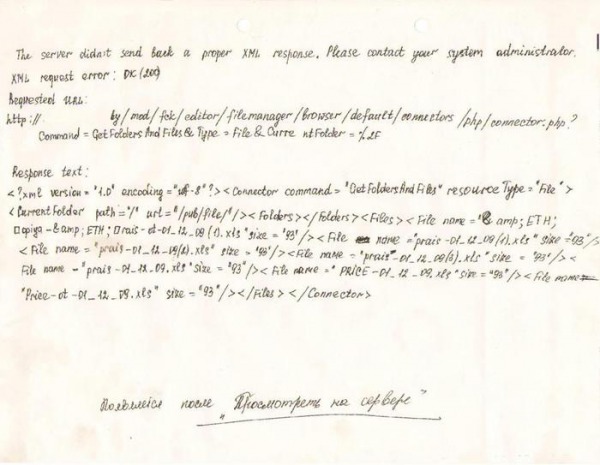 The server didn't send back a proper XML response. Please contact your system administrator.
XML request error: OK (200)
Requested URL:
http:// by/mod/fck/editor/filemanager/browser/default/connectors/php/connector.php?
Command=GetFoldersAndFiles&Type=File&CurrentFolder=%2F
Response text:
<?xml version="1.0" encoding="utf-8"?><Connector command="GetFoldersAndFiles" resourceType="File">
<CurrentFolder path="/" url="/pub/file/"/><Folders></Folders><Files><File name="&amp;ETH;
□opiya-&amp;ETH;□rais-ot-01_12_09(1).xls" size="93"/><File name="prais-01_12_09(1).xls" size="93"/>
<File name="prais-01_12_09(2).xls" size="93"/><File name="prais-01_12_09(3).xls" size="93"/><
File name="prais-01_12_09.xls" size="93"/><File name="PRICE-01_12_09.xls" size="93"/><File name=
"Price-ot-01_12_09.xls" size="93"/></Files></Connector>
Появляется после "Просмотреть на сервере"